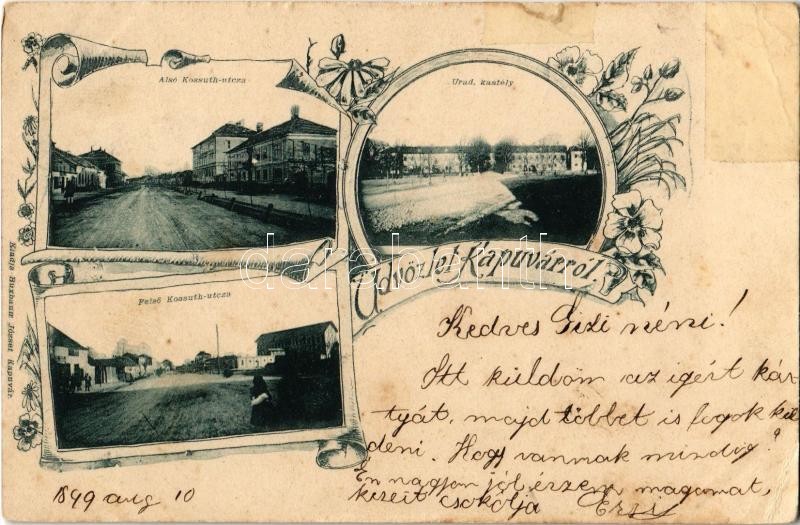 Alsó Kossuth-utcza
Urad. kastély
Felső Kossuth-utcza
Üdvözlet Kapuvárról.
Kiadja Buxbaum József Kapuvár.
darabanth.com
Kedves Gizi néni!
Itt küldöm az igért kár-
tyát, majd többet is fogok kül
deni. Hogy vannak mindig?
Én nagyon jól érzem magamat,
kezeit csokolja Erzsi
1899 aug 10